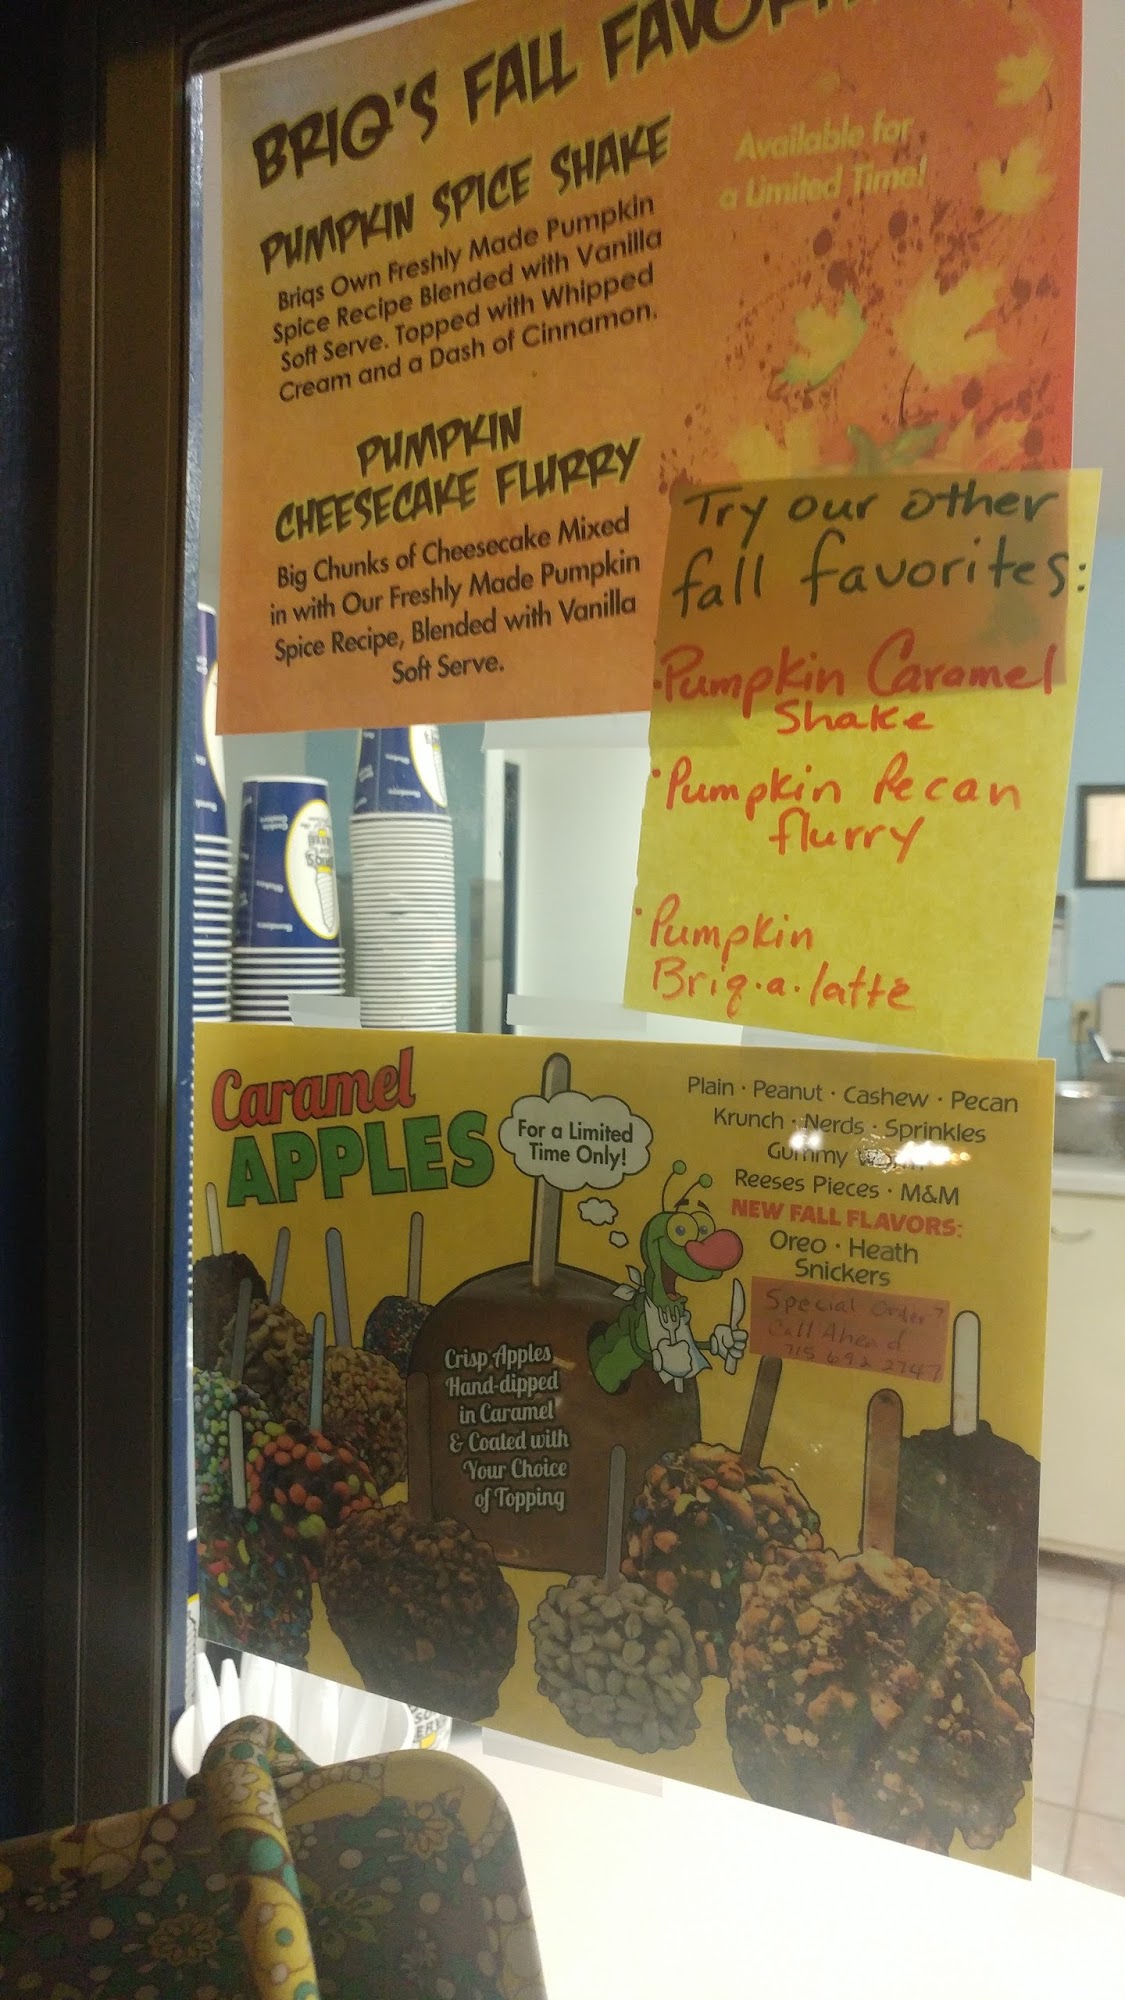 BRIQ'S FALL
PUMPKIN SPICE SHAKE
Briqs Own Freshly Made Pumpkin
Spice Recipe Blended with Vanilla
Soft Serve. Topped with Whipped
Cream and a Dash of Cinnamon.
Available for
a Limited Time!
PUMPKIN
CHEESECAKE FLURRY
Big Chunks of Cheesecake Mixed
in with Our Freshly Made Pumpkin
Spice Recipe, Blended with Vanilla
Soft Serve.
Try our other
fall favorites:
·Pumpkin Caramel
Shake
·Pumpkin Pecan
flurry
·Pumpkin
Briq·a·latte
Caramel
APPLES
For a Limited
Time Only!
Plain · Peanut · Cashew · Pecan
Krunch · Nerds · Sprinkles
Gummy
Reeses Pieces · M&M
NEW FALL FLAVORS:
Oreo · Heath
Snickers
Special Order?
Call Ahead
715 692 2747
Crisp Apples
Hand-dipped
in Caramel
& Coated with
Your Choice
of Topping